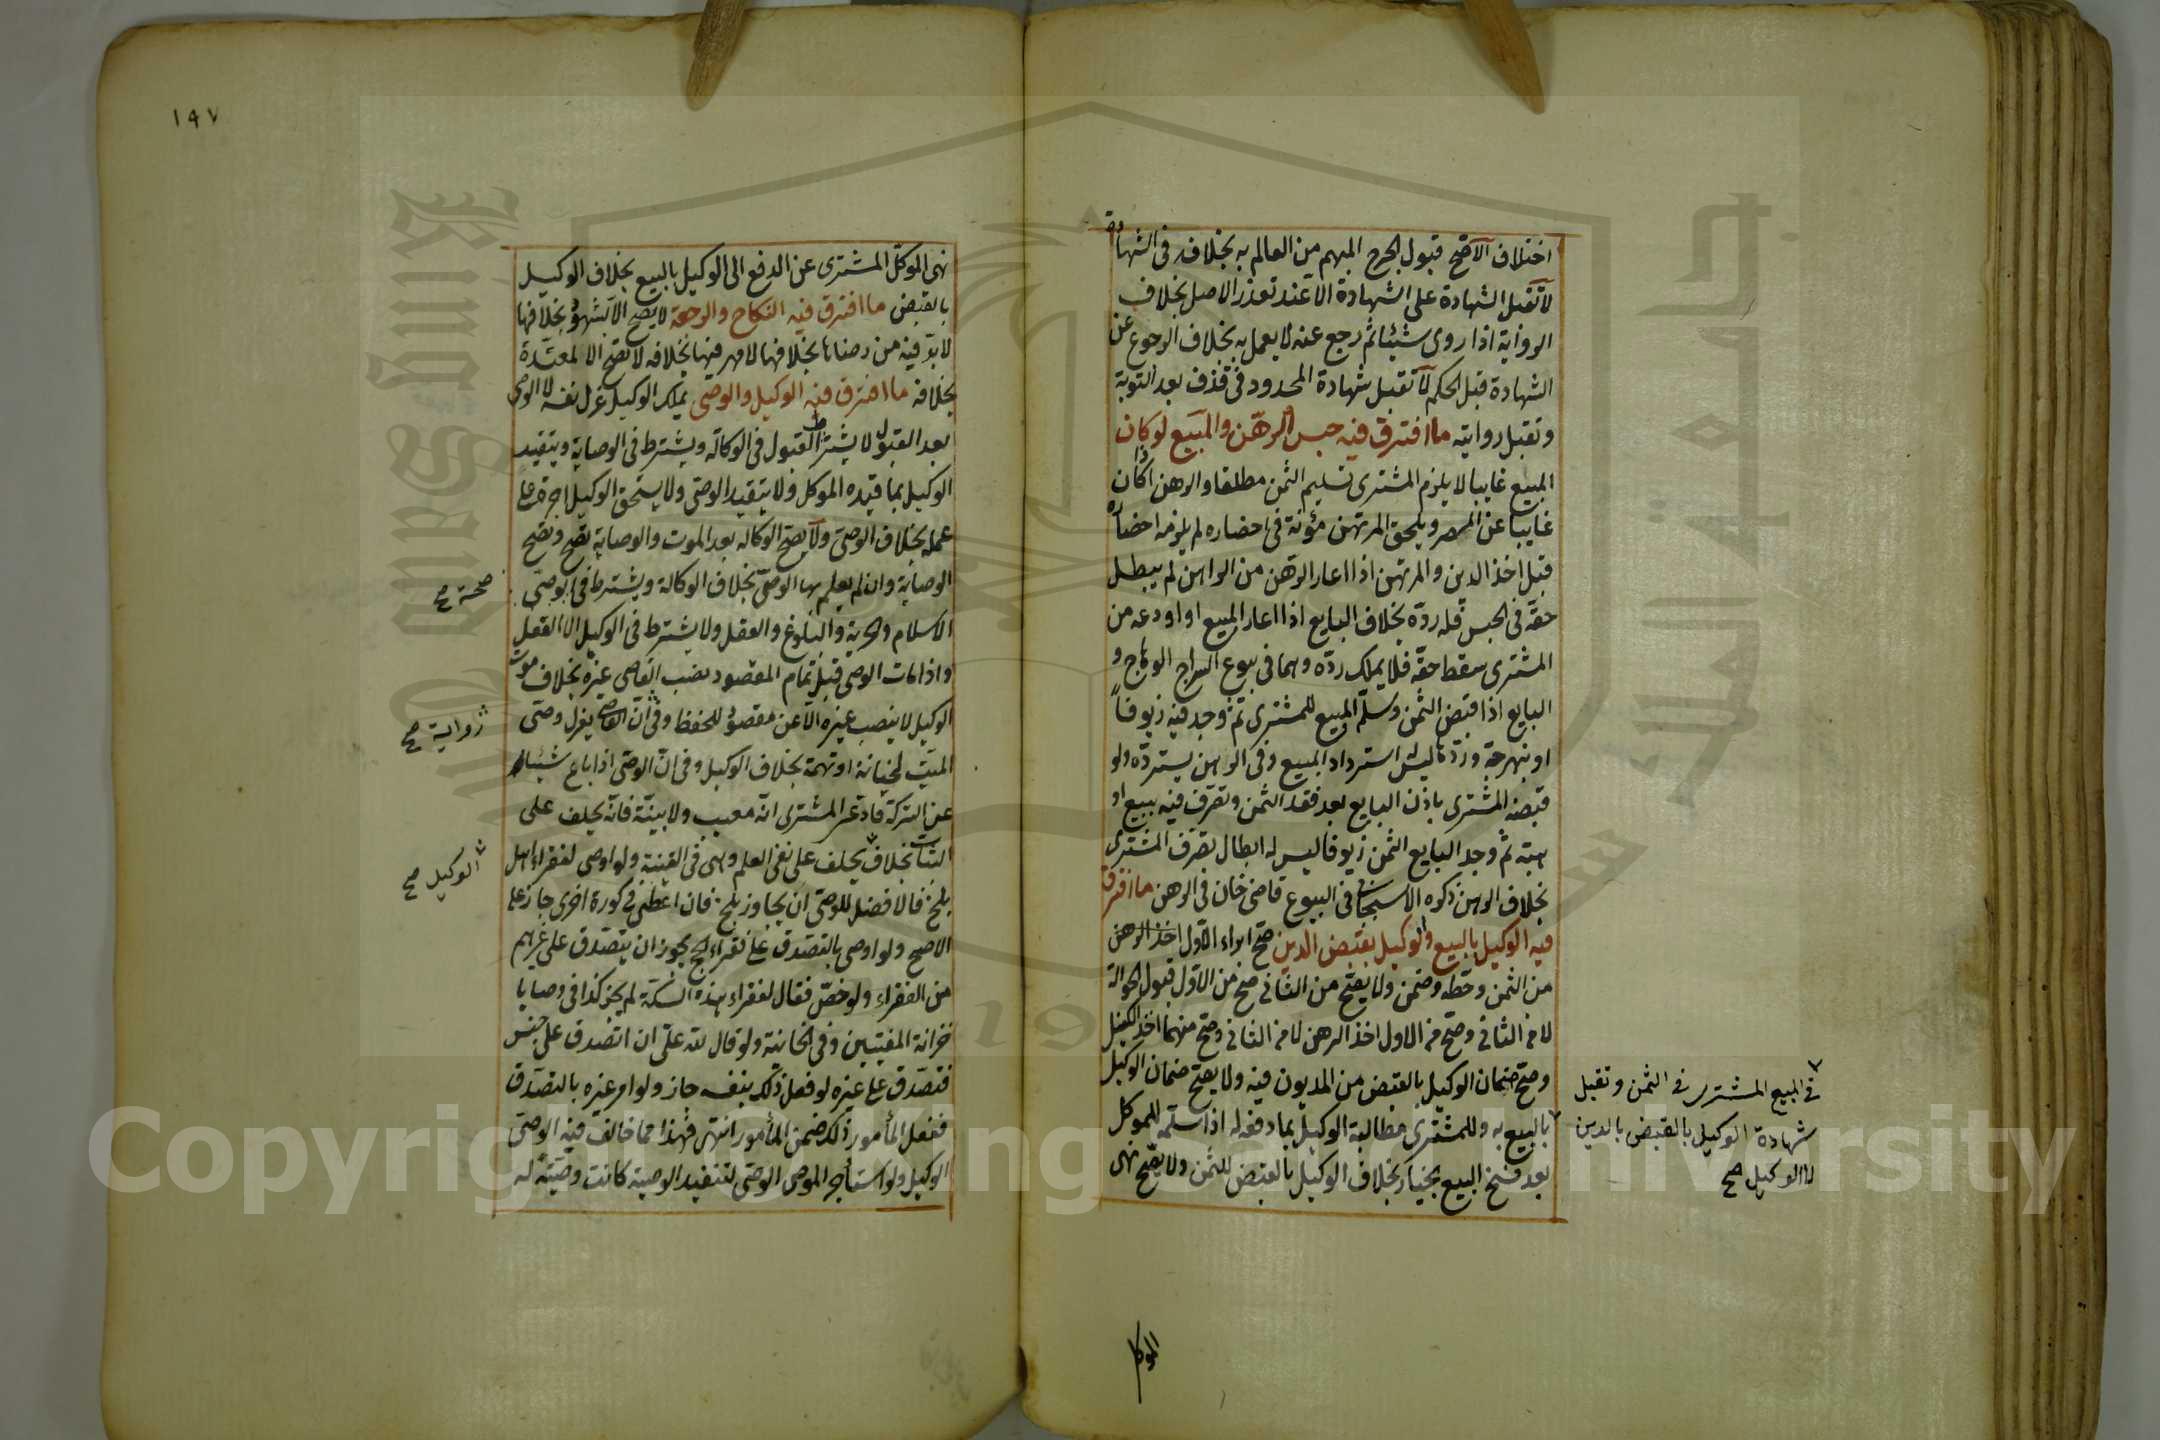 اختلاف الاصح قبول الجرح المبهم من العالم به بخلافه فى الشهادة
لا تقبل الشهادة على الشهادة الا عند تعذر الاصل بخلاف
الرواية اذا روى شيئا ثم رجع عنه لا يعمل به بخلاف الرجوع عن
الشهادة قبل الحكم لا تقبل شهادة المحدود فى قذف بعد التوبة
وتقبل روايته ما افترق فيه حبس الرهن والمبيع لو كان
المبيع غايبا لا يلزم المشترى تسليم الثمن مطلقا والرهن اذا كان
غايبا عن المصر ويلحق المرتهن مؤنة فى احضاره لم يلزمه احضاره
قبل اخذ الدين والمرتهن اذا اعار الرهن من الراهن لم يبطل
حقه فى الحبس فله رده بخلاف البايع اذا اعار المبيع او اودعه من
المشترى سقط حقه فلا يملك رده وهما فى بيوع السراج الوهاج و
البايع اذا قبض الثمن وسلم المبيع للمشترى ثم وجد فيه زيوفا
او بنهرجة وردها ليس له استرداد المبيع وفى الرهن يسترده ولو
قبضه المشترى باذن البايع بعد نقد الثمن وتصرف فيه ببيع او
هبة ثم وجد البايع الثمن زيوفا ليس له ابطال تصرف المشترى
بخلاف الرهن ذكره الاسبيجابى فى البيوع قاضى خان فى الرهن ما افترق
فيه الوكيل بالبيع والوكيل بقبض الدين صح ابراء الاول اخذ الرهن
من الثمن وحطه وضمن ولا يصح من الثانى صح من الاول قبول الحوالة
لا من الثانى وصح من الاول اخذ الرهن لا من الثانى وصح منهما اخذ الكفيل
وصح ضمان الوكيل بالقبض من المديون فيه ولا يصح ضمان الوكيل
بالبيع به وللمشترى مطالبة الوكيل بما دفعه له اذا سلمه للموكل
بعد فسخ البيع بخيار بخلاف الوكيل بالقبض للثمن ولا يصح نهى
فى المبيع المشترى فى الثمن وتقبل
شهادة الوكيل بالقبض بالدين
لا الوكيل صح
الموكل
١٩٧
نهى الموكل المشترى عن الدفع الى الوكيل بالبيع بخلاف الوكيل
بالقبض ما افترق فيه النكاح والرجعة لا يصح الا بشهود بخلافها
لا بد فيه من رضاها بخلافها لا مهر فيها بخلافه لا تصح الا لمعتدة
بخلافه ما افترق فيه الوكيل والوصى يملك الوكيل عزل نفسه لا الوصى
بعد القبول لا يشترط القبول فى الوكالة ويشترط فى الوصاية ويتقيد
الوكيل بما قيده الموكل ولا يتقيد الوصى ولا يستحق الوكيل اجرة على
عمله بخلاف الوصى ولا يصح الوكالة بعد الموت والوصاية تصح وتصح
الوصاية وان لم يعلم بها الوصى بخلاف الوكالة ويشترط فى الوصى
الاسلام والحرية والبلوغ والعقل ولا يشترط فى الوكيل الا العقل
واذا مات الوصى قبل تمام المقصود نصب القاضى غيره بخلاف موت
الوكيل لا ينصب غيره الا عن مفقود للحفظ وفى ان القاضى يعزل وصى
الميت لخيانة او تهمة بخلاف الوكيل وفى ان الوصى اذا باع شيئا
عن التركة فادعى المشترى انه معيب ولا بينة فانه يحلف على
البتات بخلاف يحلف على نفى العلم وهى فى القنية ولو اوصى لفقراء اهل
بلخ فالافضل للوصى ان لا يجاوز بلخ فان اعطى فى كورة اخرى جاز على
الاصح ولو اوصى بالتصدق على فقراء الحج يجوز ان يتصدق على غيرهم
من الفقراء ولو خص فقال لفقراء هذه السكة لم يجز كذا فى وصايا
خزانة المفتيين وفى الخانية ولو قال لله على ان اتصدق على جنس
فتصدق على غيره لو فعل ذلك بنفسه جاز ولو امر غيره بالتصدق
ففعل المأمور ذلك ضمن المأمور انتهى فهذا مما خالف فيه الوصى
الوكيل ولو استأجر الموصى الوصى لتنفيذ الوصية كانت وصية له
صحة صح
رواية صح
الوكيل صح
Copyright © King Saud University